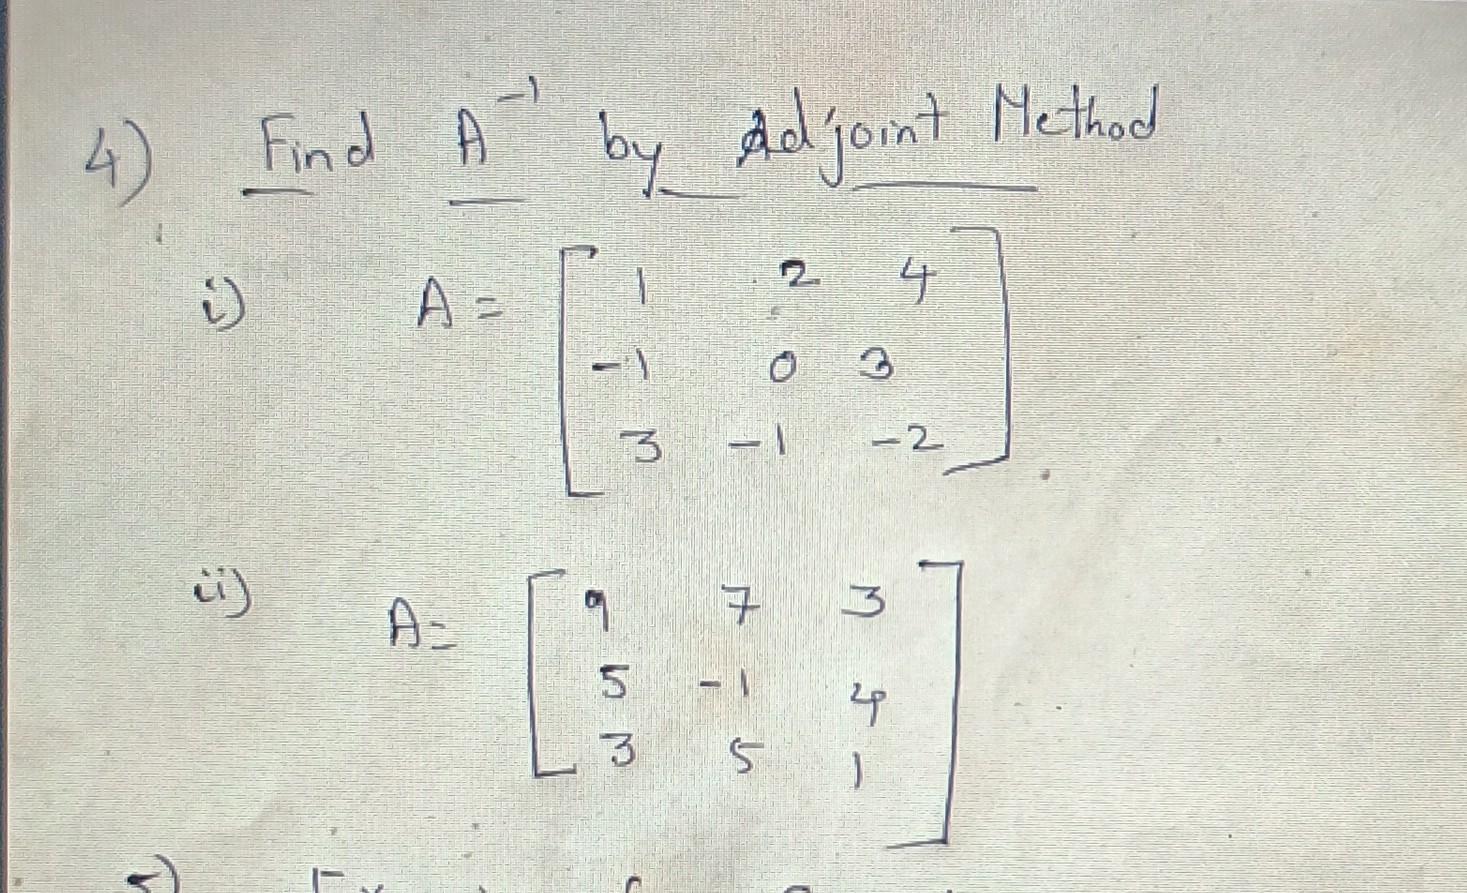 4) Find A⁻¹ by Adjoint Method
i) A = [ 1 2 4
-1 0 3
3 -1 -2 ]
ii) A = [ 9 7 3
5 -1 4
3 5 1 ]
5)